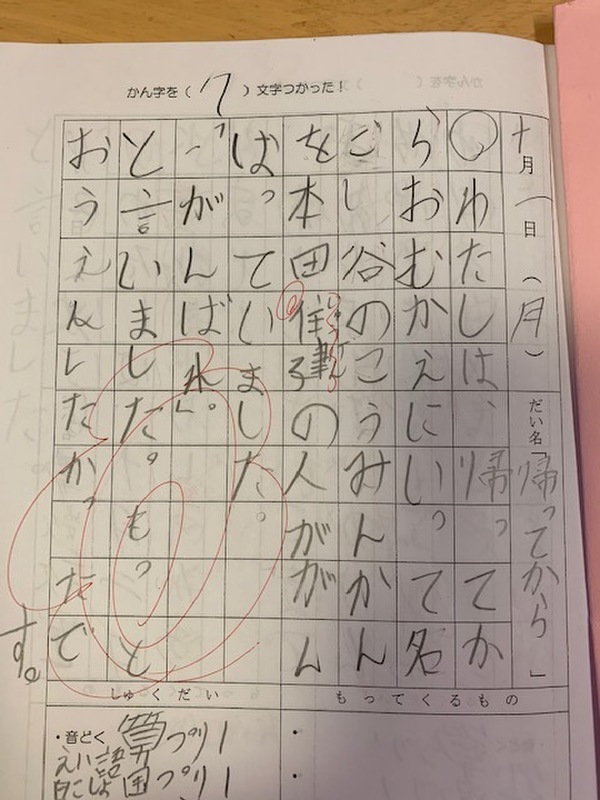 かん字を（17）文字つかった！
十月一日（月）だい名「帰ってから」
○わたしは、帰ってか
らおむかえにいって名
ごし谷のこうみんかん
を本田住建の人ががん
ばっていました。
「がんばれ」。
と言いました。もっと
おうえんしたかったで
す。
もってくるもの
しゅくだい
・音どく 算プリ1
えい語 国プリ1